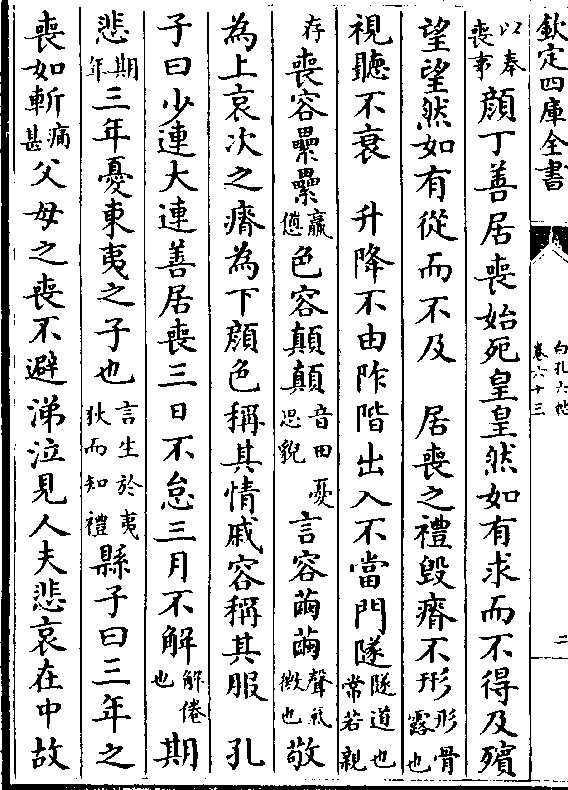 欽定四庫全書
白孔六帖
卷六十三
二
以奉喪事顔丁善居喪始死皇皇然如有求而不得及殯
望望然如有從而不及　居喪之禮毀瘠不形形骨露也
視聽不衰　升降不由阼階出入不當門隧隧道也常若親
存喪容纍纍羸憊色容顛顛音田憂思貌言容繭繭聲氣微也敬
為上哀次之瘠為下顔色稱其情戚容稱其服　孔
子曰少連大連善居喪三日不怠三月不解解倦也期
悲期年三年憂東夷之子也言生於夷狄而知禮縣子曰三年之
喪如斬痛甚父母之喪不避涕泣見人夫悲哀在中故